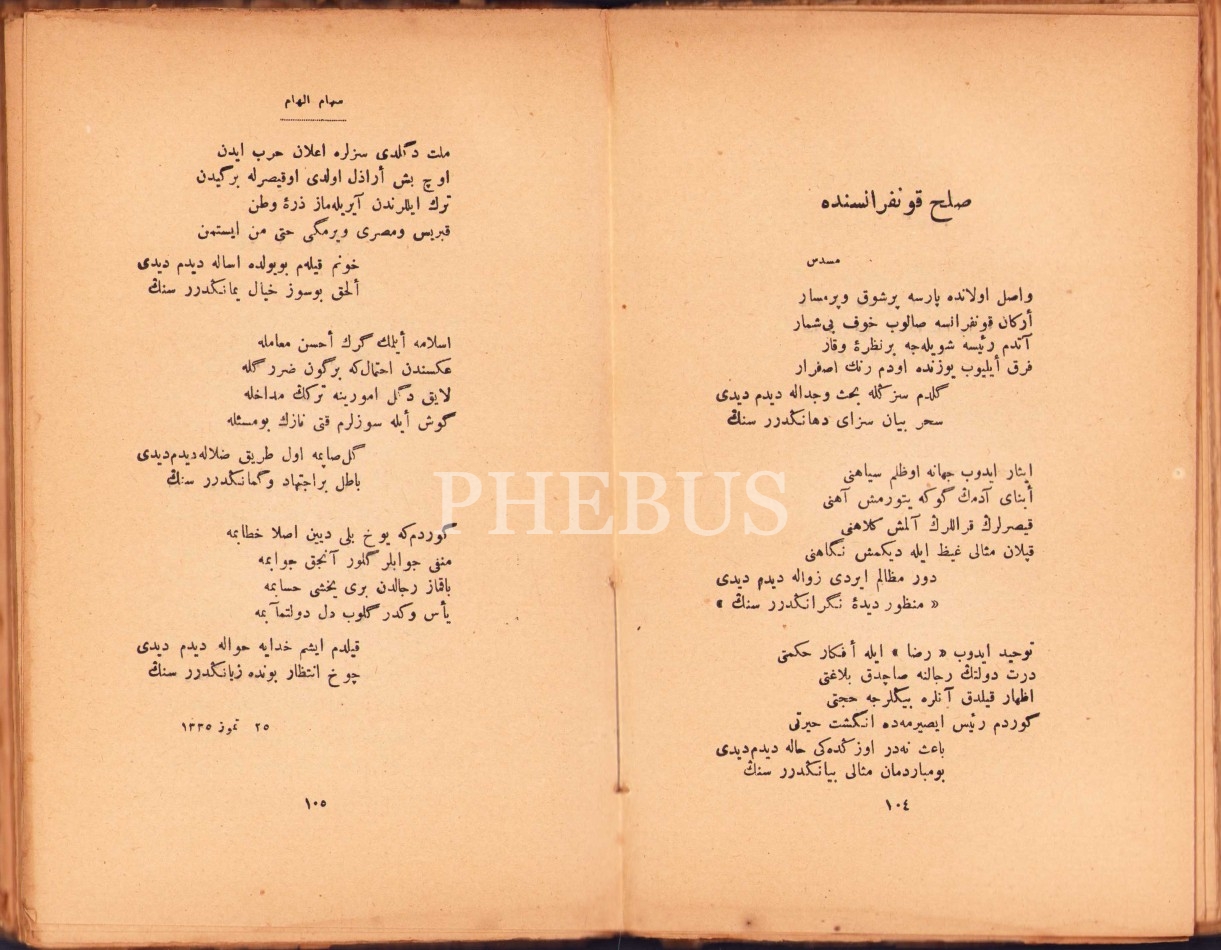 صلح قونفرانسنده
مسدس
واصل اولانده پارسه پرشوق وپرمسار
أركان قونفرانسه صالوب خوف بی‌شمار
آتدم رئیسه شویله‌جه برنظرۀ وقار
فرق أیلیوب یوزنده اودم رنك اصفرار
گلدم سزكله بحث وجداله دیدم دیدی
سحر بیان سزای دهانكدرر سنك
ایثار ایدوب جهانه اوظلم سیاهنی
أبنای آدمك گوكه یتورمش آهنی
قیصرلرك قراللرك آلمش كلاهنی
قپلان مثالی غیظ ایله دیكمش نگاهنی
دور مظالم ایردی زواله دیدم دیدی
« منظور دیدۀ نگرانكدرر سنك »
توحید ایدوب « رضا » ایله أفكار حكمتی
درت دولتك رجالنه صاچدق بلاغتی
اظهار قیلدق آنلره بیكلرجه حجتی
گوردم رئیس ایصیرمه‌ده انگشت حیرتی
باعث نه‌در اوزكده‌كی حاله دیدم دیدی
بومباردمان مثالی بیانكدرر سنك
١٠٤
سهام الهام
ملت دگلدی سزلره اعلان حرب ایدن
اوچ بش أراذل اولدی اوقیصرله برگیدن
ترك ایللرندن آیریله‌ماز ذرۀ وطن
قبریس ومصری ویرمگی حتی من ایستمن
خونم قیله‌م بویولده اساله دیدم دیدی
ألحق بوسوز خیال یمانكدرر سنك
اسلامه أیلمك گرك أحسن معامله
عكسندن احتمال‌كه برگون ضرر گله
لایق دگل امورینه تركك مداخله
گوش أیله سوزلرم قتی نازك بومسئله
گل‌صاپمه اول طریق ضلاله‌دیدم‌دیدی
باطل براجتهاد وگمانكدرر سنك
گوردم‌كه یوخ بلی دیین اصلا خطابمه
منفی جوابلر گلور آنجق جوابمه
باقماز رجالدن بری یخشی حسابمه
یأس وكدر گلوب دل دولتمآبمه
قیلدم ایشم خدایه حواله دیدم دیدی
چوخ انتظار بونده زیانكدرر سنك
٢٥ تموز ١٣٣٥
١٠٥
PHEBUS